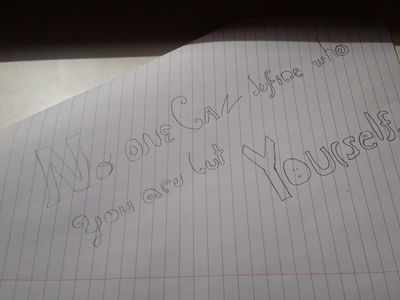 No ONE CAN define who
you are but Yourself.